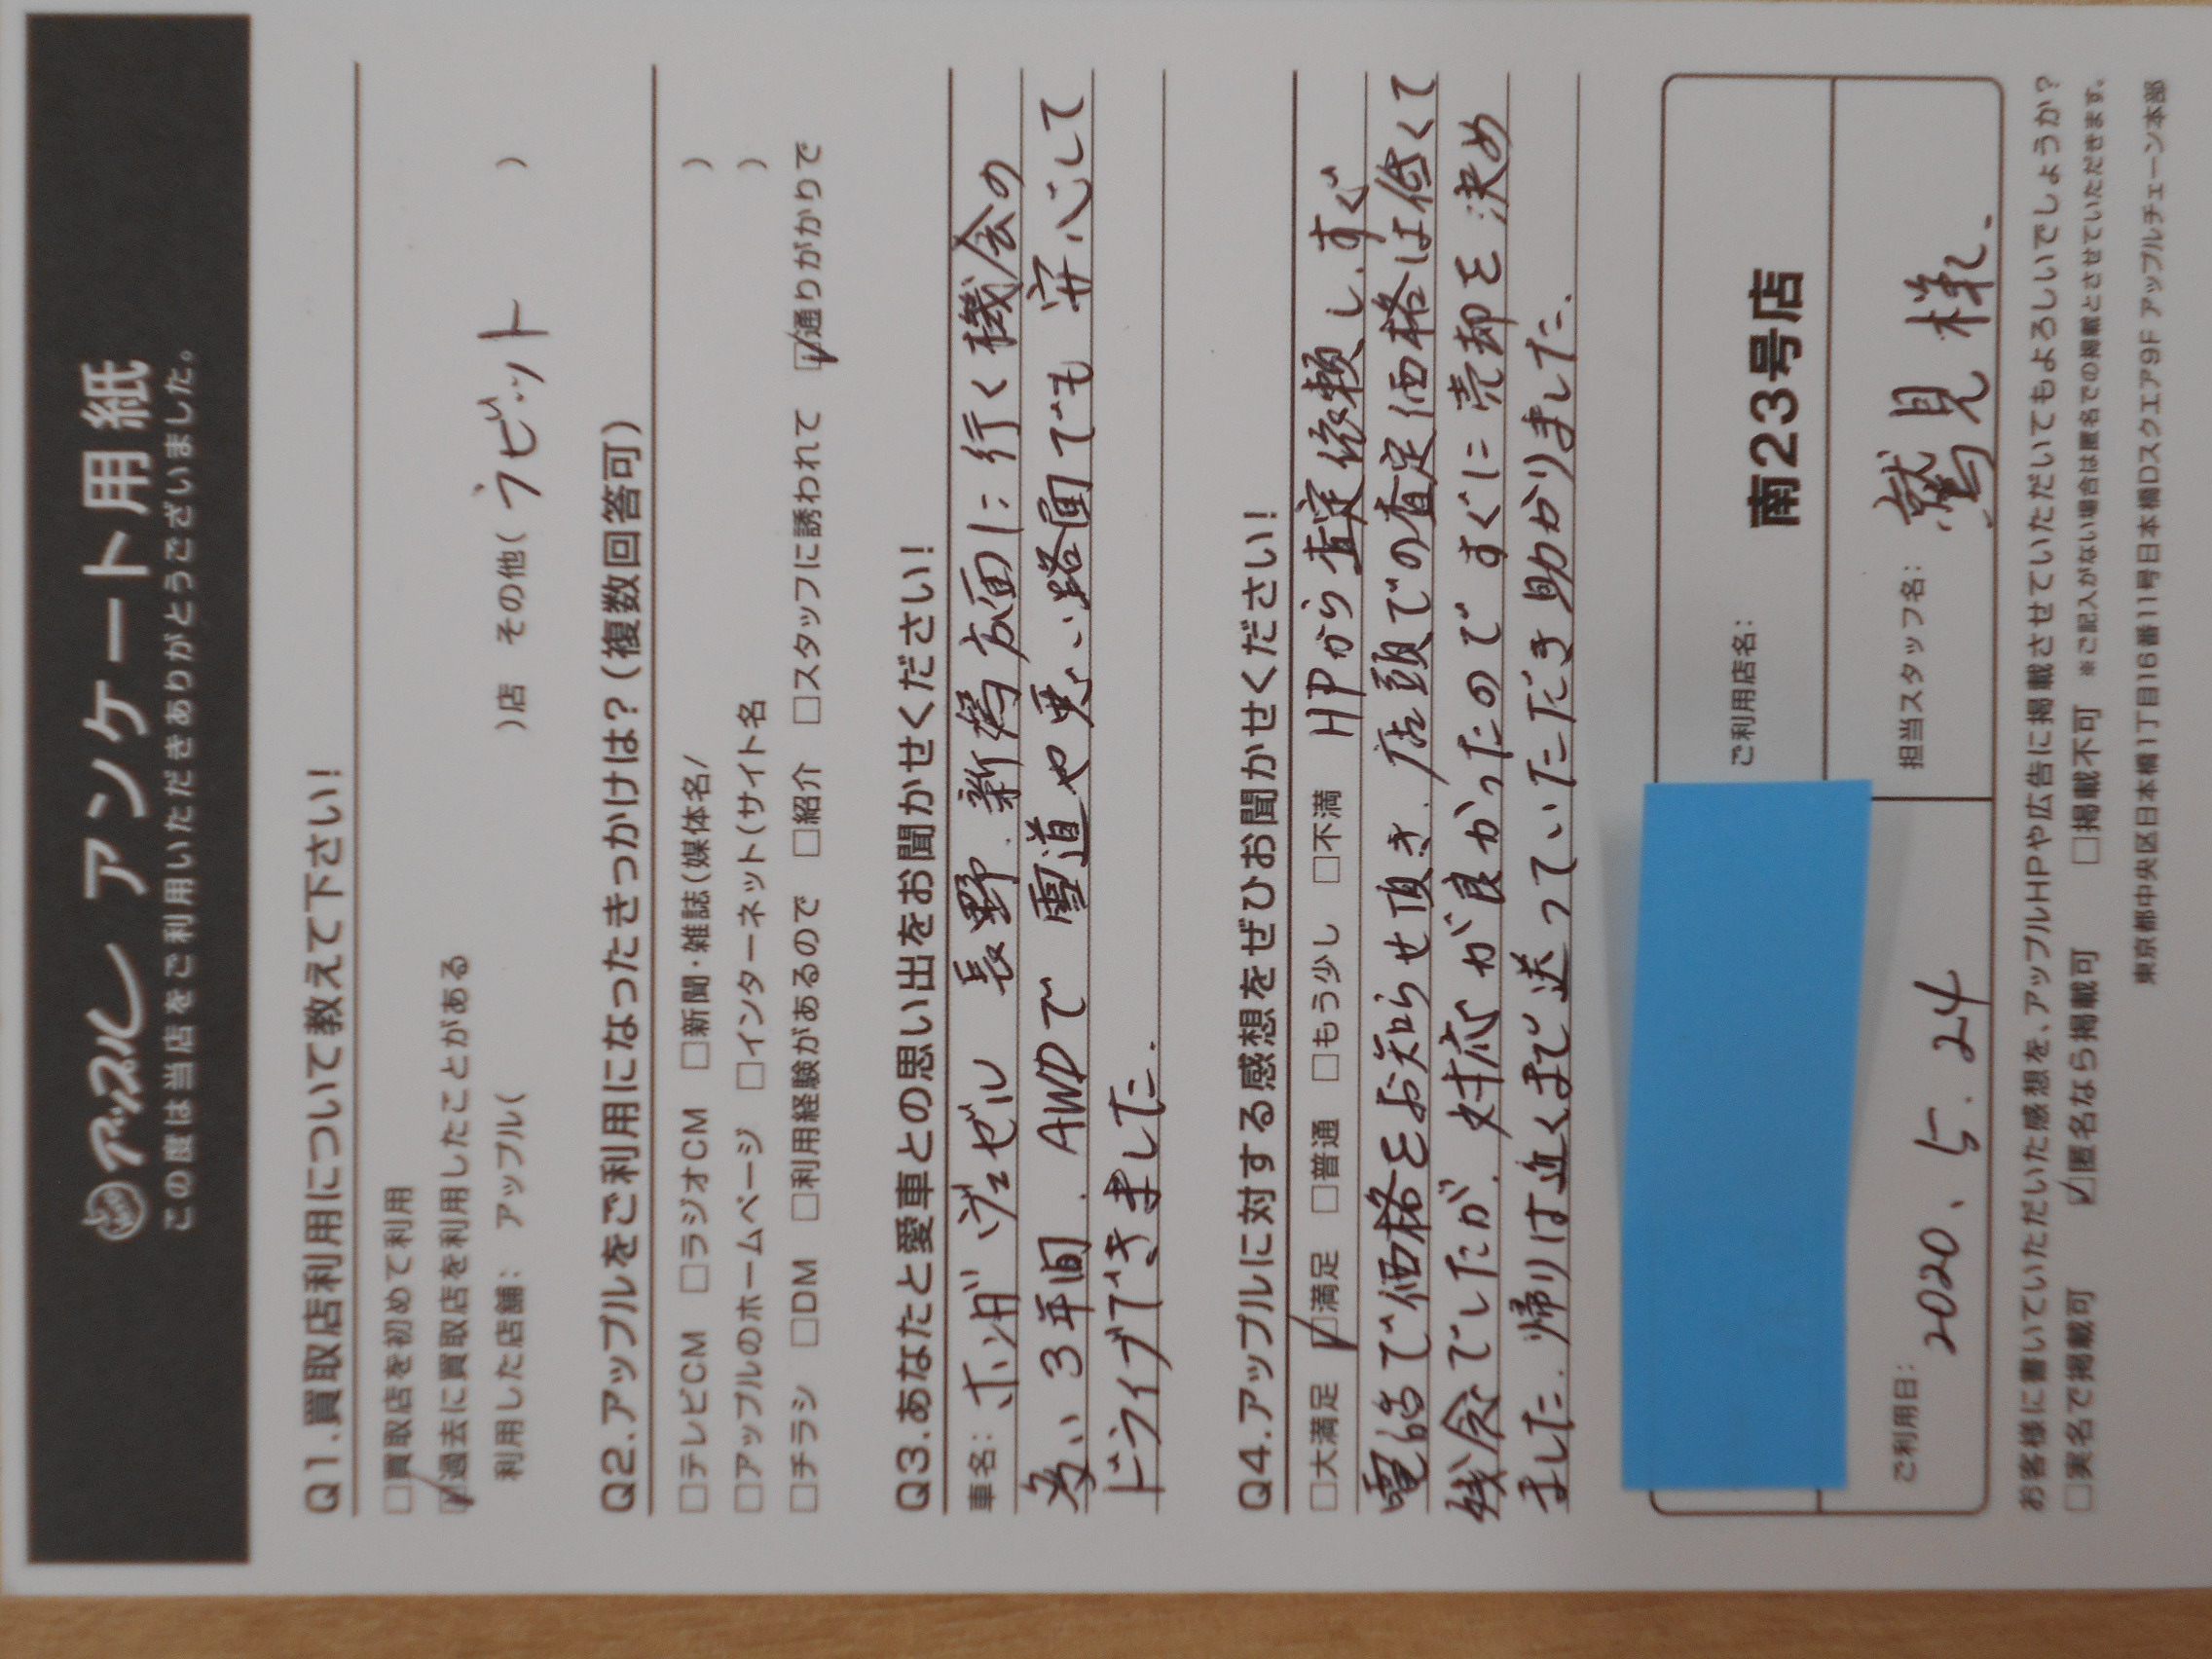 アップル アンケート用紙
この度は当店をご利用いただきありがとうございました。
Q1.買取店利用について教えて下さい!
□買取店を初めて利用
☑過去に買取店を利用したことがある
利用した店舗: アップル( )店 その他( ラビット )
Q2.アップルをご利用になったきっかけは?(複数回答可)
□テレビCM □ラジオCM □新聞・雑誌(媒体名/ )
□アップルのホームページ □インターネット(サイト名 )
□チラシ □DM □利用経験があるので □紹介 □スタッフに誘われて ☑通りがかりで
Q3.あなたと愛車との思い出をお聞かせください!
車名: ホンダ ヴェゼル 長野.新潟方面に行く機会の
多い3年間.AWDで雪道や悪い路面でも安心して
ドライブできました.
Q4.アップルに対する感想をぜひお聞かせください!
□大満足 ☑満足 □普通 □もう少し □不満 HPから査定依頼し.すぐ
電話で価格をお知らせ頂き.店頭での査定価格は低くて
残念でしたが.対応が良かったのですぐに売却を決め
ました.帰りは近くまで送っていただき助かりました.
ご利用店名: 南23号店
ご利用日: 2020、5.24
担当スタッフ名: 鷲見様.
お客様に書いていただいた感想を、アップルHPや広告に掲載させていただいてもよろしいでしょうか?
□実名で掲載可 ☑匿名なら掲載可 □掲載不可 ※ご記入がない場合は匿名での掲載とさせていただきます。
東京都中央区日本橋1丁目16番11号日本橋Dスクエア9F アップルチェーン本部